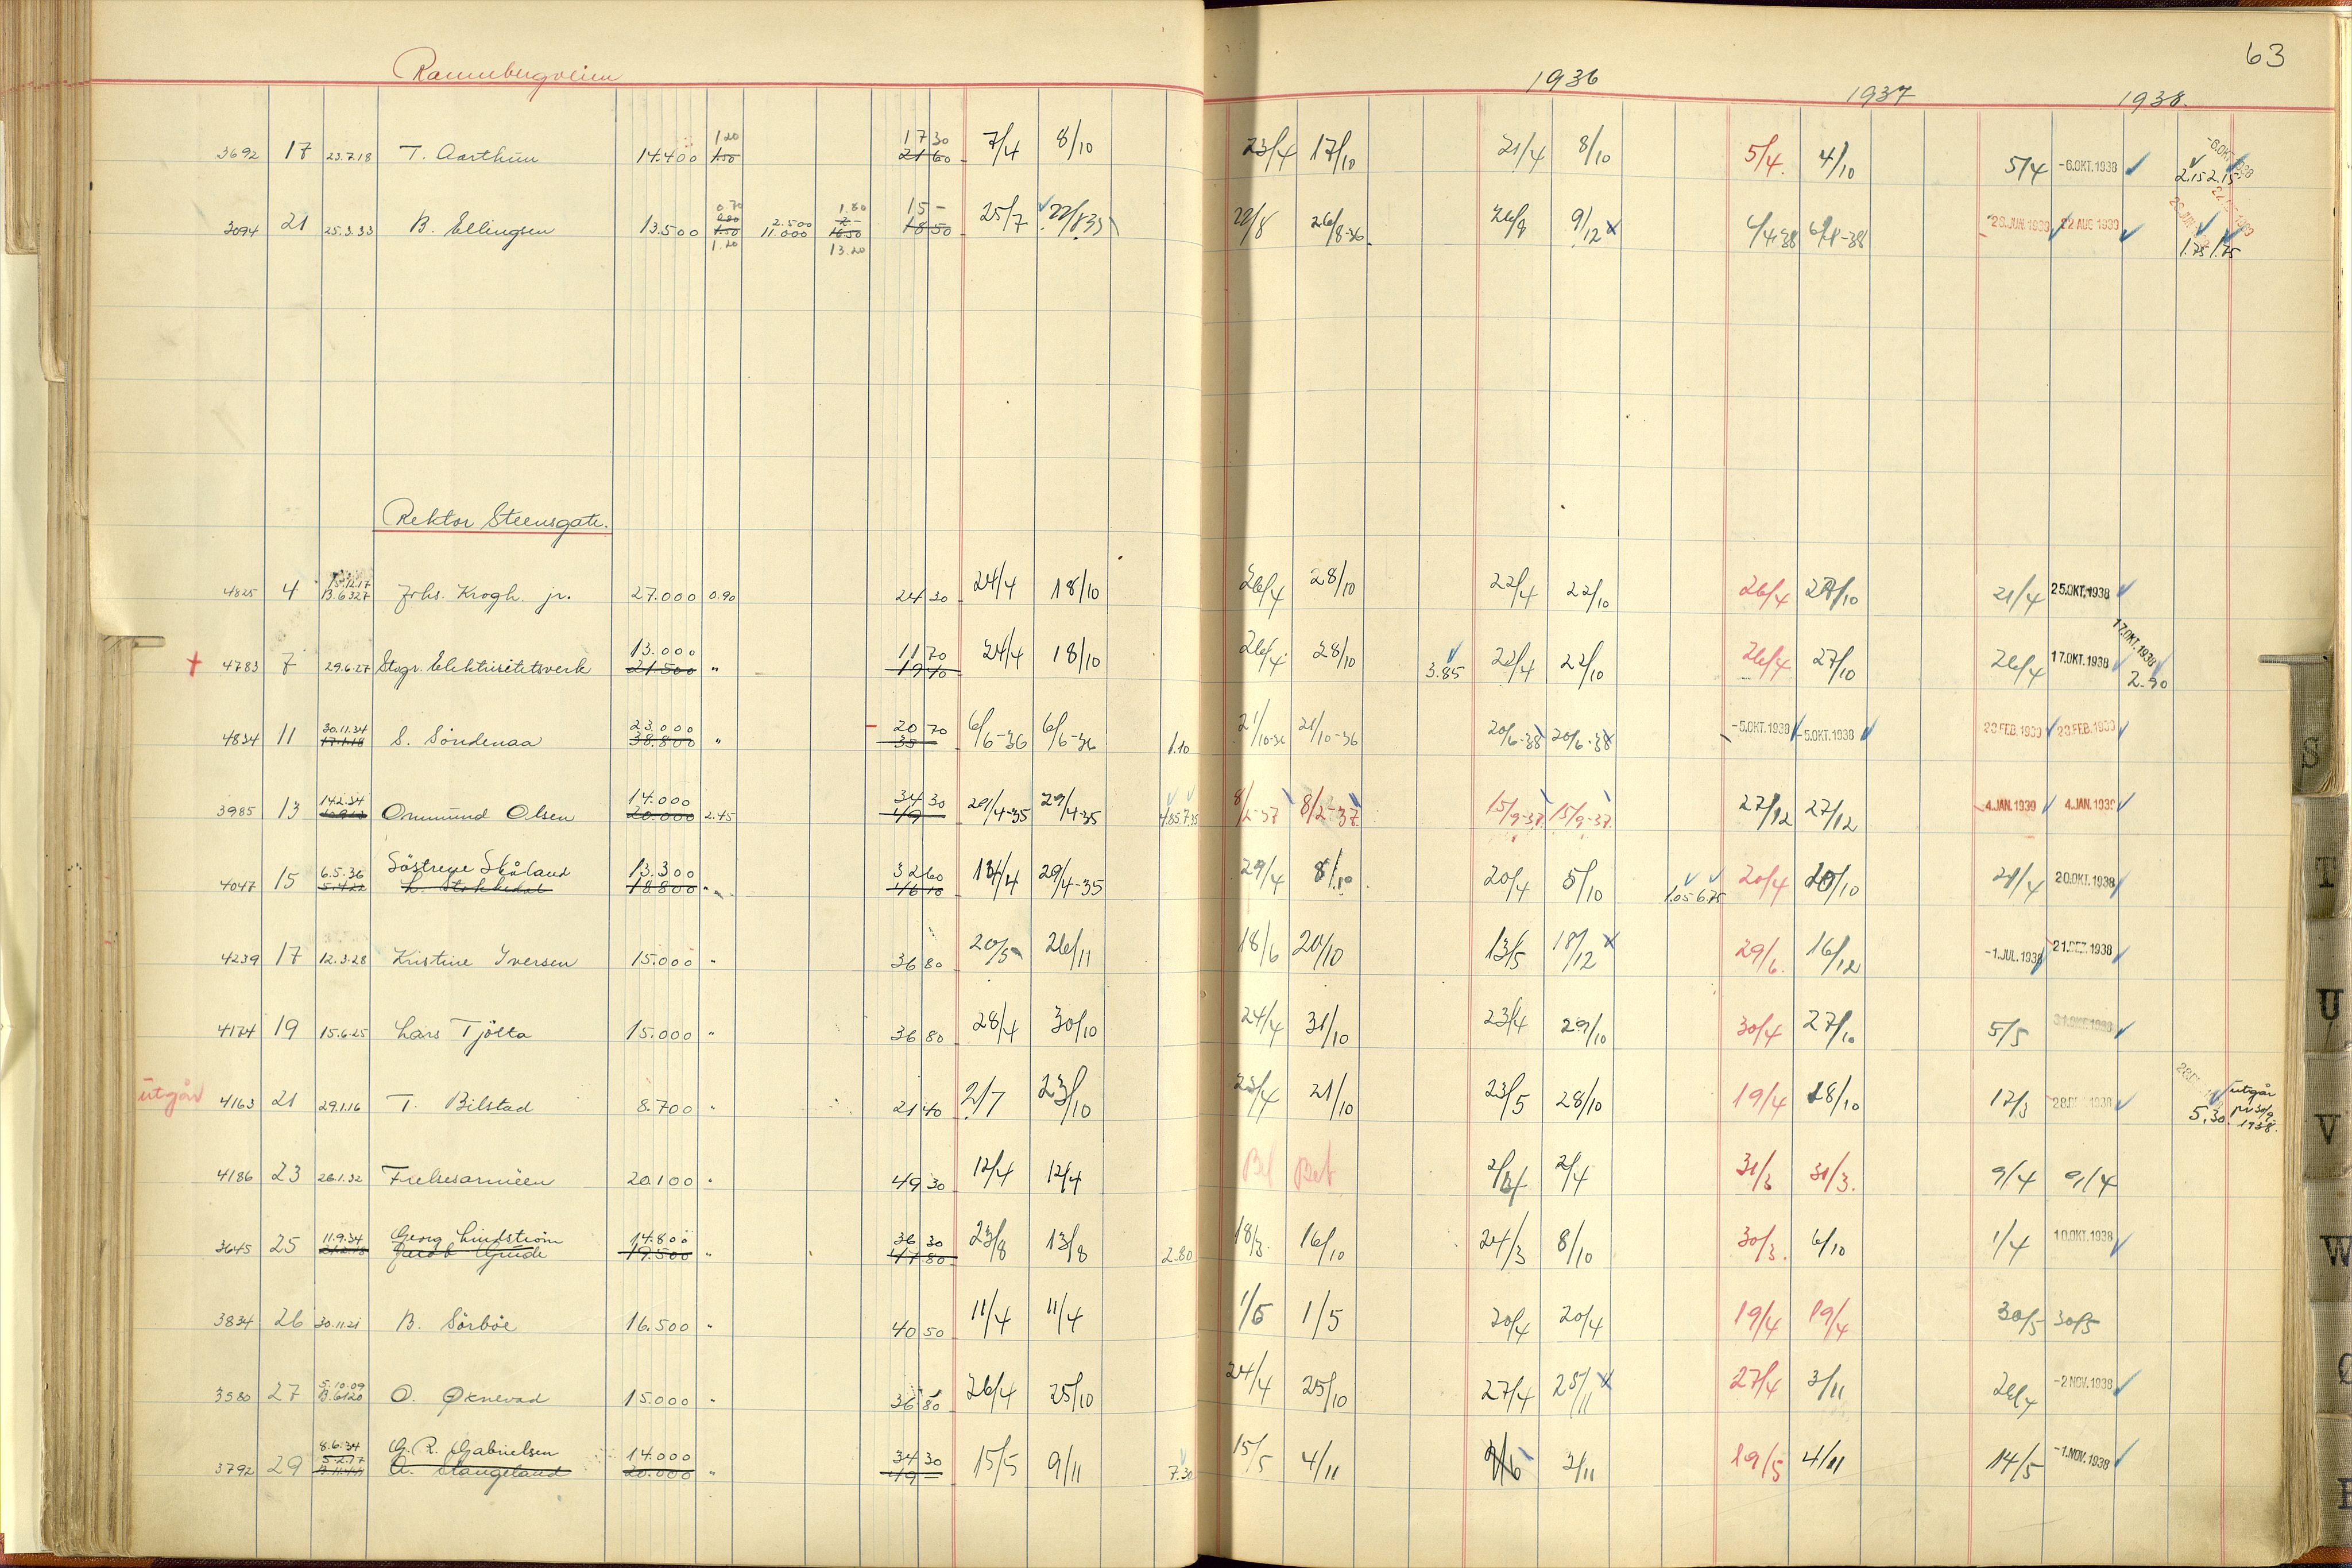 63
Ramnbergveien 1936 1937 1938.
1.20 17 30
3692 17 23.7.18 T. Aarthun 14.400 1.50 21 60 7/4 8/10 23/4 17/10 21/4 8/10 5/4. 4/10 5/4 -6.OKT.1938 2.15 2.15
0.70 1.80 15 -
3094 21 25.3.33 B. Ellingsen 13.500 1.50 2.500 11.000 16.50 18 50 25/7 22/8 35 22/8 26/8-36 26/8 9/12 x 4/4-38 28.JUN.1939 22 AUG 1939 1.75 1.75
1.20 13.20
Rektor Steensgate.
15.12.17
4825 4 B.6327 Johs. Krogh. jr. 27.000 0.90 24 30 24/4 18/10 26/4 28/10 22/4 22/10 26/4 27/10 21/4 25.OKT.1938
13.000 11 70 17.OKT.1938
4783 7 29.6.27 Stvgr. Elektrisitetsverk 21.500 " 19 40 24/4 18/10 26/4 28/10 3.85 22/4 22/10 26/4 27/10 26/4 17.OKT.1938 2.90
30.11.34 23.000 20 70
4834 11 17.1.18 S. Söndenaa 38.800 " 35 6/6-36 6/6-36 1.10 21/10-36 21/10-36 20/6-38 20/6-38 -5.OKT.1938 -5.OKT.1938 23.FEB.1939 23.FEB.1939
14.2.34 14.000 34 30
3985 13 Ommund Olsen 20.000 2.45 49 29/4-35 29/4-35 4.85 7.35 8/2-37 8/2-37 15/9-37 15/9-37 27/12 27/12 4.JAN.1939 4.JAN.1939
6.5.36 Söstrene Skåland 13.300 32 60
4047 15 18.800 " 46 10 18/4 29/4-35 29/4 8/10 20/4 5/10 1.05 6.75 20/4 20/10 21/4 20.OKT.1938
4239 17 12.3.28 Kristine Iversen 15.000 " 36 80 20/5 26/11 18/6 20/10 13/5 18/12 x 29/6. 16/12 -1.JUL.1938 21.DEZ.1938
4174 19 15.6.25 Lars Tjölta 15.000 " 36 80 28/4 30/10 24/4 31/10 23/4 29/10 30/4 27/10 5/5 31.OKT.1938
utgår 4163 21 29.1.16 T. Bilstad 8.700 " 21 40 2/7 23/10 23/4 21/10 23/5 28/10 19/4 28/10 17/3 5.30 utgår pr 30/9 1938.
4186 23 26.1.32 Frelsesarmeen 20.100 " 49 30 12/4 12/4 Bet Bet 2/4 2/4 31/3 31/3. 9/4 9/4
11.9.34 Georg Lindström 14.800 36 30
3645 25 Jacob Gude 19.500 " 47 80 23/8 13/8 2.80 18/3. 16/10 24/3 8/10 30/3. 6/10 1/4 10.OKT.1938
3834 26 30.11.21 B. Sörböe 16.500 " 40 50 11/4 11/4 1/5 1/5 20/4 20/4 19/4 19/4 30/5 30/5
5.10.09
3580 27 B.6120 O. Øknevad 15.000 " 36 80 26/4 25/10 24/4 25/10 27/4 25/11 x 27/4 3/11 26/4 -2 NOV.1938
8.6.34 G. R. Gabrielsen 14.000 34 30
5.2.17
3792 29 A. Stangeland 20.000 " 49 - 15/5 9/11 7.30 15/5 4/11 2/11 19/5 4/11 14/5 -1.NOV.1938
S
T
U
V
W